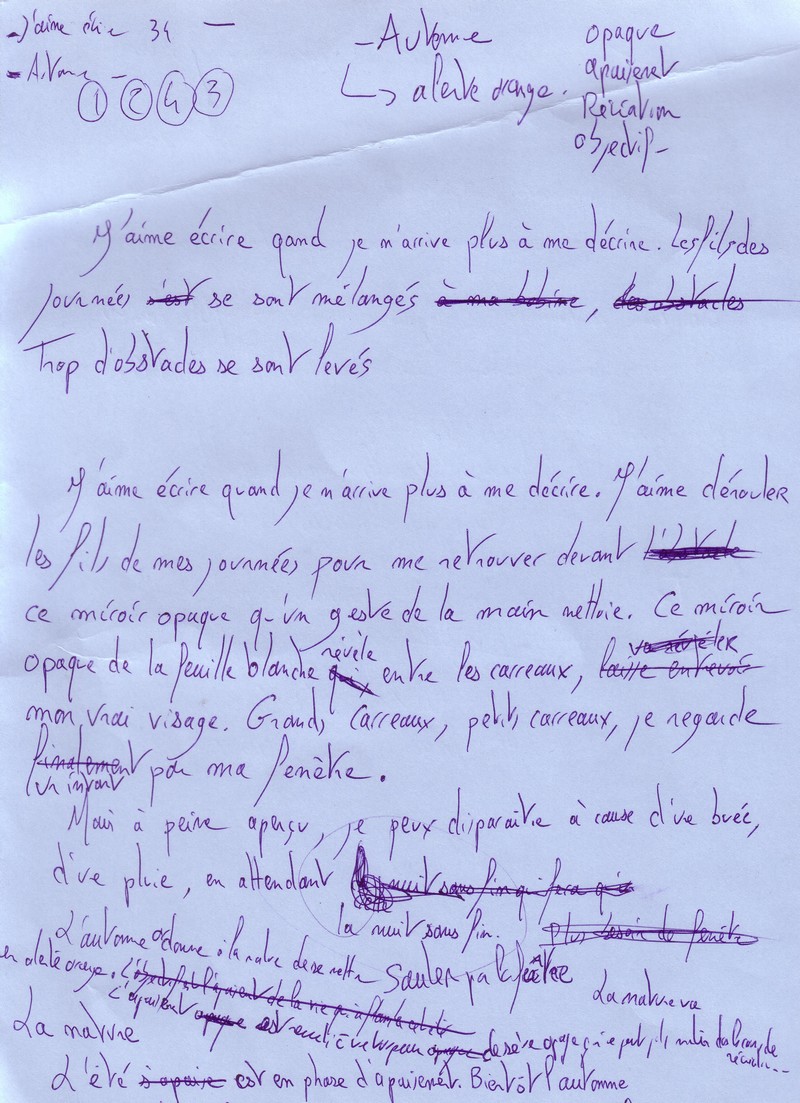 - J'aime écrire 34 —
- Automne -
1 2 4 3
- Automne
↳ alerte orange.
opaque
apaisement
Récréation
objectif -
J'aime écrire qand je n'arrive plus à me décrire. Les fils des
journées s'est se sont mélangés à ma bobine, des obstacles
Trop d'obstacles se sont levés
J'aime écrire quand je n'arrive plus à me décrire. J'aime dérouler
les fils de mes journées pour me retrouver devant
ce miroir opaque qu'un geste de la main nettoie. Ce miroir
révèle va révéler
opaque de la feuille blanche qui entre les carreaux, laisse entrevoir
mon vrai visage. Grands carreaux, petits carreaux, je regarde
finalement par ma fenêtre.
un instant
Mais à peine aperçu, je peux disparaître à cause d'une buée,
d'une pluie, en attendant nuit sans fin qui fera que
la nuit sans fin. Plus besoin de fenêtre
L'automne ordonne à la nature de se mettre
en alerte orange. Sauter par la fenêtre
La nature va
La nature
L'été s'apaise est en phase d'apaisement. Bientôt l'automne